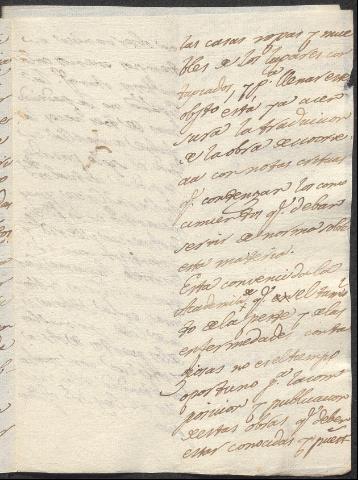 las casas ropas y mue
bles de los lugares con
tagiados, y pª llenar este
objeto esta ya acor
la traduccion
de la obra de
da con notas criticas
qe. condenzan los cono
cimientos qe. deban
servir de norma sobre
esta materia.
Esta convencida la
Academia de qe. en el
to de la peste y de las
enfermedades conta
giosas no es el tiempo
oportuno pª la com
posicion y publicacion
de estas obras qe. deben
estar conocidas y